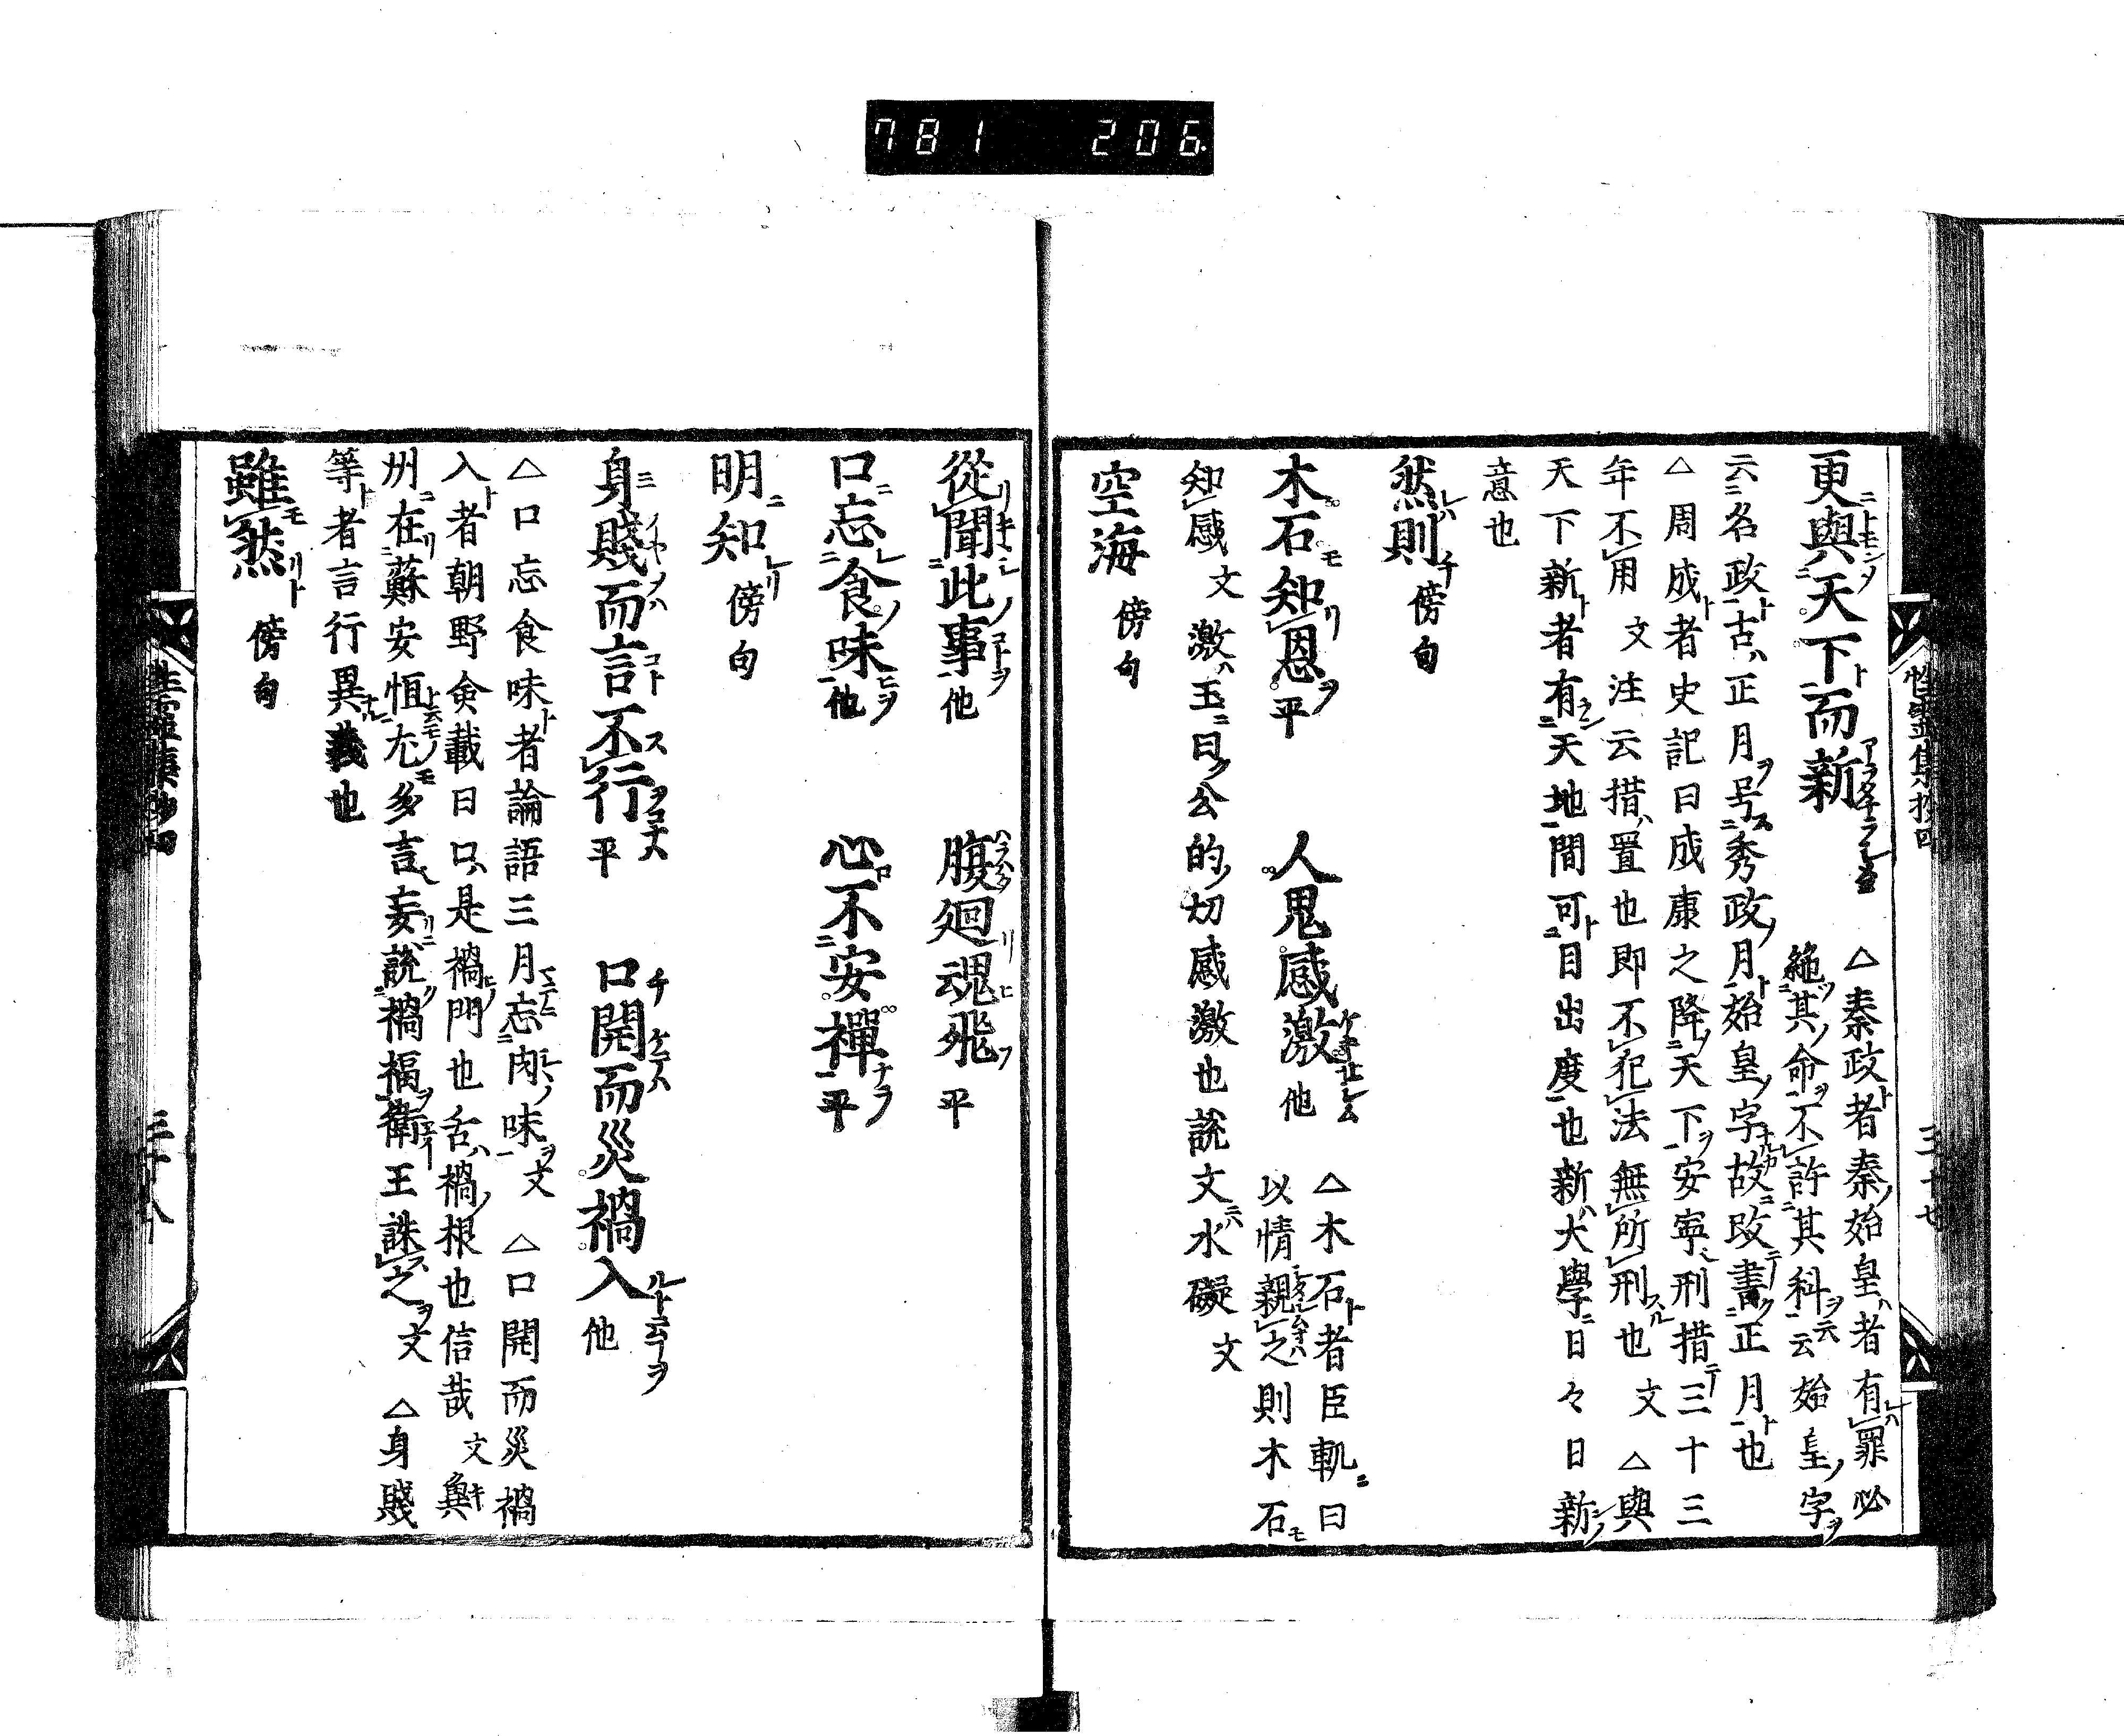 781 206
性霊集抄四 三十七
更與天下而新 △秦政者秦始皇者有罪必
絶其命不許其科云始皇字
云名政古正月号秀政月始皇字故改書正月也
△周成者史記曰成康之降天下安寧刑措三十三
年不用 文 注云措置也即不犯法無所刑也 文 △與
天下新者有天地間可目出度也新大學日々日新
意也
然則 傍句
木石知恩平 人鬼感激他 △木石者臣軌曰
以情親之則木石
知感 文 激玉曰公的切感激也説文水礙 文
空海 傍句
從聞此事他 腹廻魂飛平
口忘食味他 心不安禪平
明知 傍句
身賤而言不行平 口開而災禍入他
△口忘食味者論語三月忘肉味 文 △口開而災禍
入者朝野僉載曰口是禍門也舌禍根也信哉 文 冀
州在蘇安恒尤多言妄説禍福衛王誅之 文 △身賤
等者言行異義也
雖然 傍句
三十八